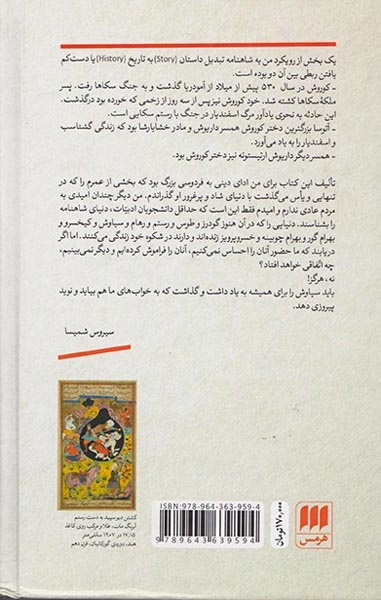 یک بخش از رویکرد من به شاهنامه تبدیل داستان (Story) به تاریخ (History) یا دست‌کم
یافتن ربطی بین آن دو بوده است.
- کوروش در سال ۵۳۰ پیش از میلاد از آمودریا گذشت و به جنگ سکاها رفت. پسر
ملکهٔ سکاها کشته شد. خود کوروش نیز پس از سه روز از زخمی که خورده بود درگذشت.
این حادثه به نحوی یادآور مرگ اسفندیار در جنگ با رستم سکایی است.
- آتوسا بزرگترین دختر کوروش همسر داریوش و مادر خشایارشا بود که زندگی گشتاسب
و اسفندیار را به یاد می‌آورد.
- همسر دیگر داریوش آرتیستونه نیز دختر کوروش بود.
تألیف این کتاب برای من ادای دینی به فردوسی بزرگ بود که بخشی از عمرم را که در
تنهایی و یأس می‌گذشت با دنیای شاد و پرغرور او گذراندم. من دیگر چندان امیدی به
مردم عادی ندارم و امیدم فقط این است که حداقل دانشجویان ادبیّات، دنیای شاهنامه
را بشناسند. دنیایی را که در آن هنوز گودرز و طوس و رستم و رهام و سیاوش و کیخسرو و
بهرام گور و بهرام چوبینه و خسروپرویز زنده‌اند و دارند در شکوه خود زندگی می‌کنند. اما اگر
دریابند که ما حضور آنان را احساس نمی‌کنیم، آنان را فراموش کرده‌ایم و دیگر نمی‌بینیم،
چه اتّفاقی خواهد افتاد؟
نه، هرگز!
باید سیاوش را برای همیشه به یاد داشت و گذاشت که به خواب‌های ما هم بیاید و نوید
پیروزی دهد.
سیروس شمیسا
کشتن دیو سپید به دست رستم
آبرنگ مات، طلا و مرکب روی کاغذ
هند، دوره‌ی گورکانیان، قرن دهم
ISBN: 978-964-363-959-4
9 789643 639594
۱۷۰,۰۰۰ تومان
هرمس